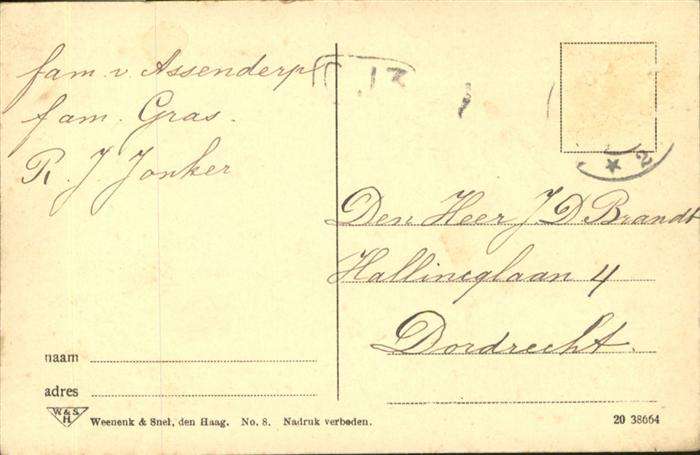 fam v Assenderp
fam. Gras.
R. J. Jonker
Den Heer J D Brandt
Hallincqlaan 4
Dordrecht.
naam
adres
W & S
H
Weenenk & Snel, den Haag. No. 8. Nadruk verboden.
20 38664
2